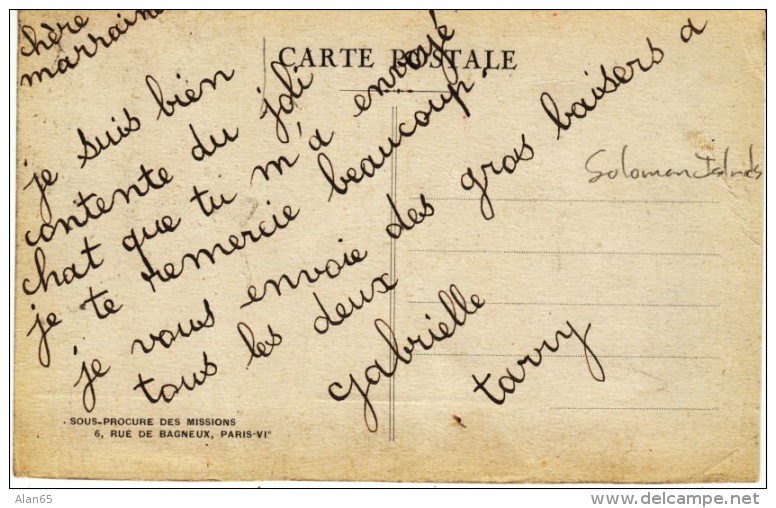 chère
marraine
CARTE POSTALE
je suis bien
contente du joli
chat que tu m'a envoyé
je te remercie beaucoup.
je vous envoie des gros baisers a
tous les deux
gabrielle
tarry
Soloman Islands
SOUS-PROCURE DES MISSIONS
6, RUE DE BAGNEUX, PARIS-VIᵉ
Alan65
delcampe.net